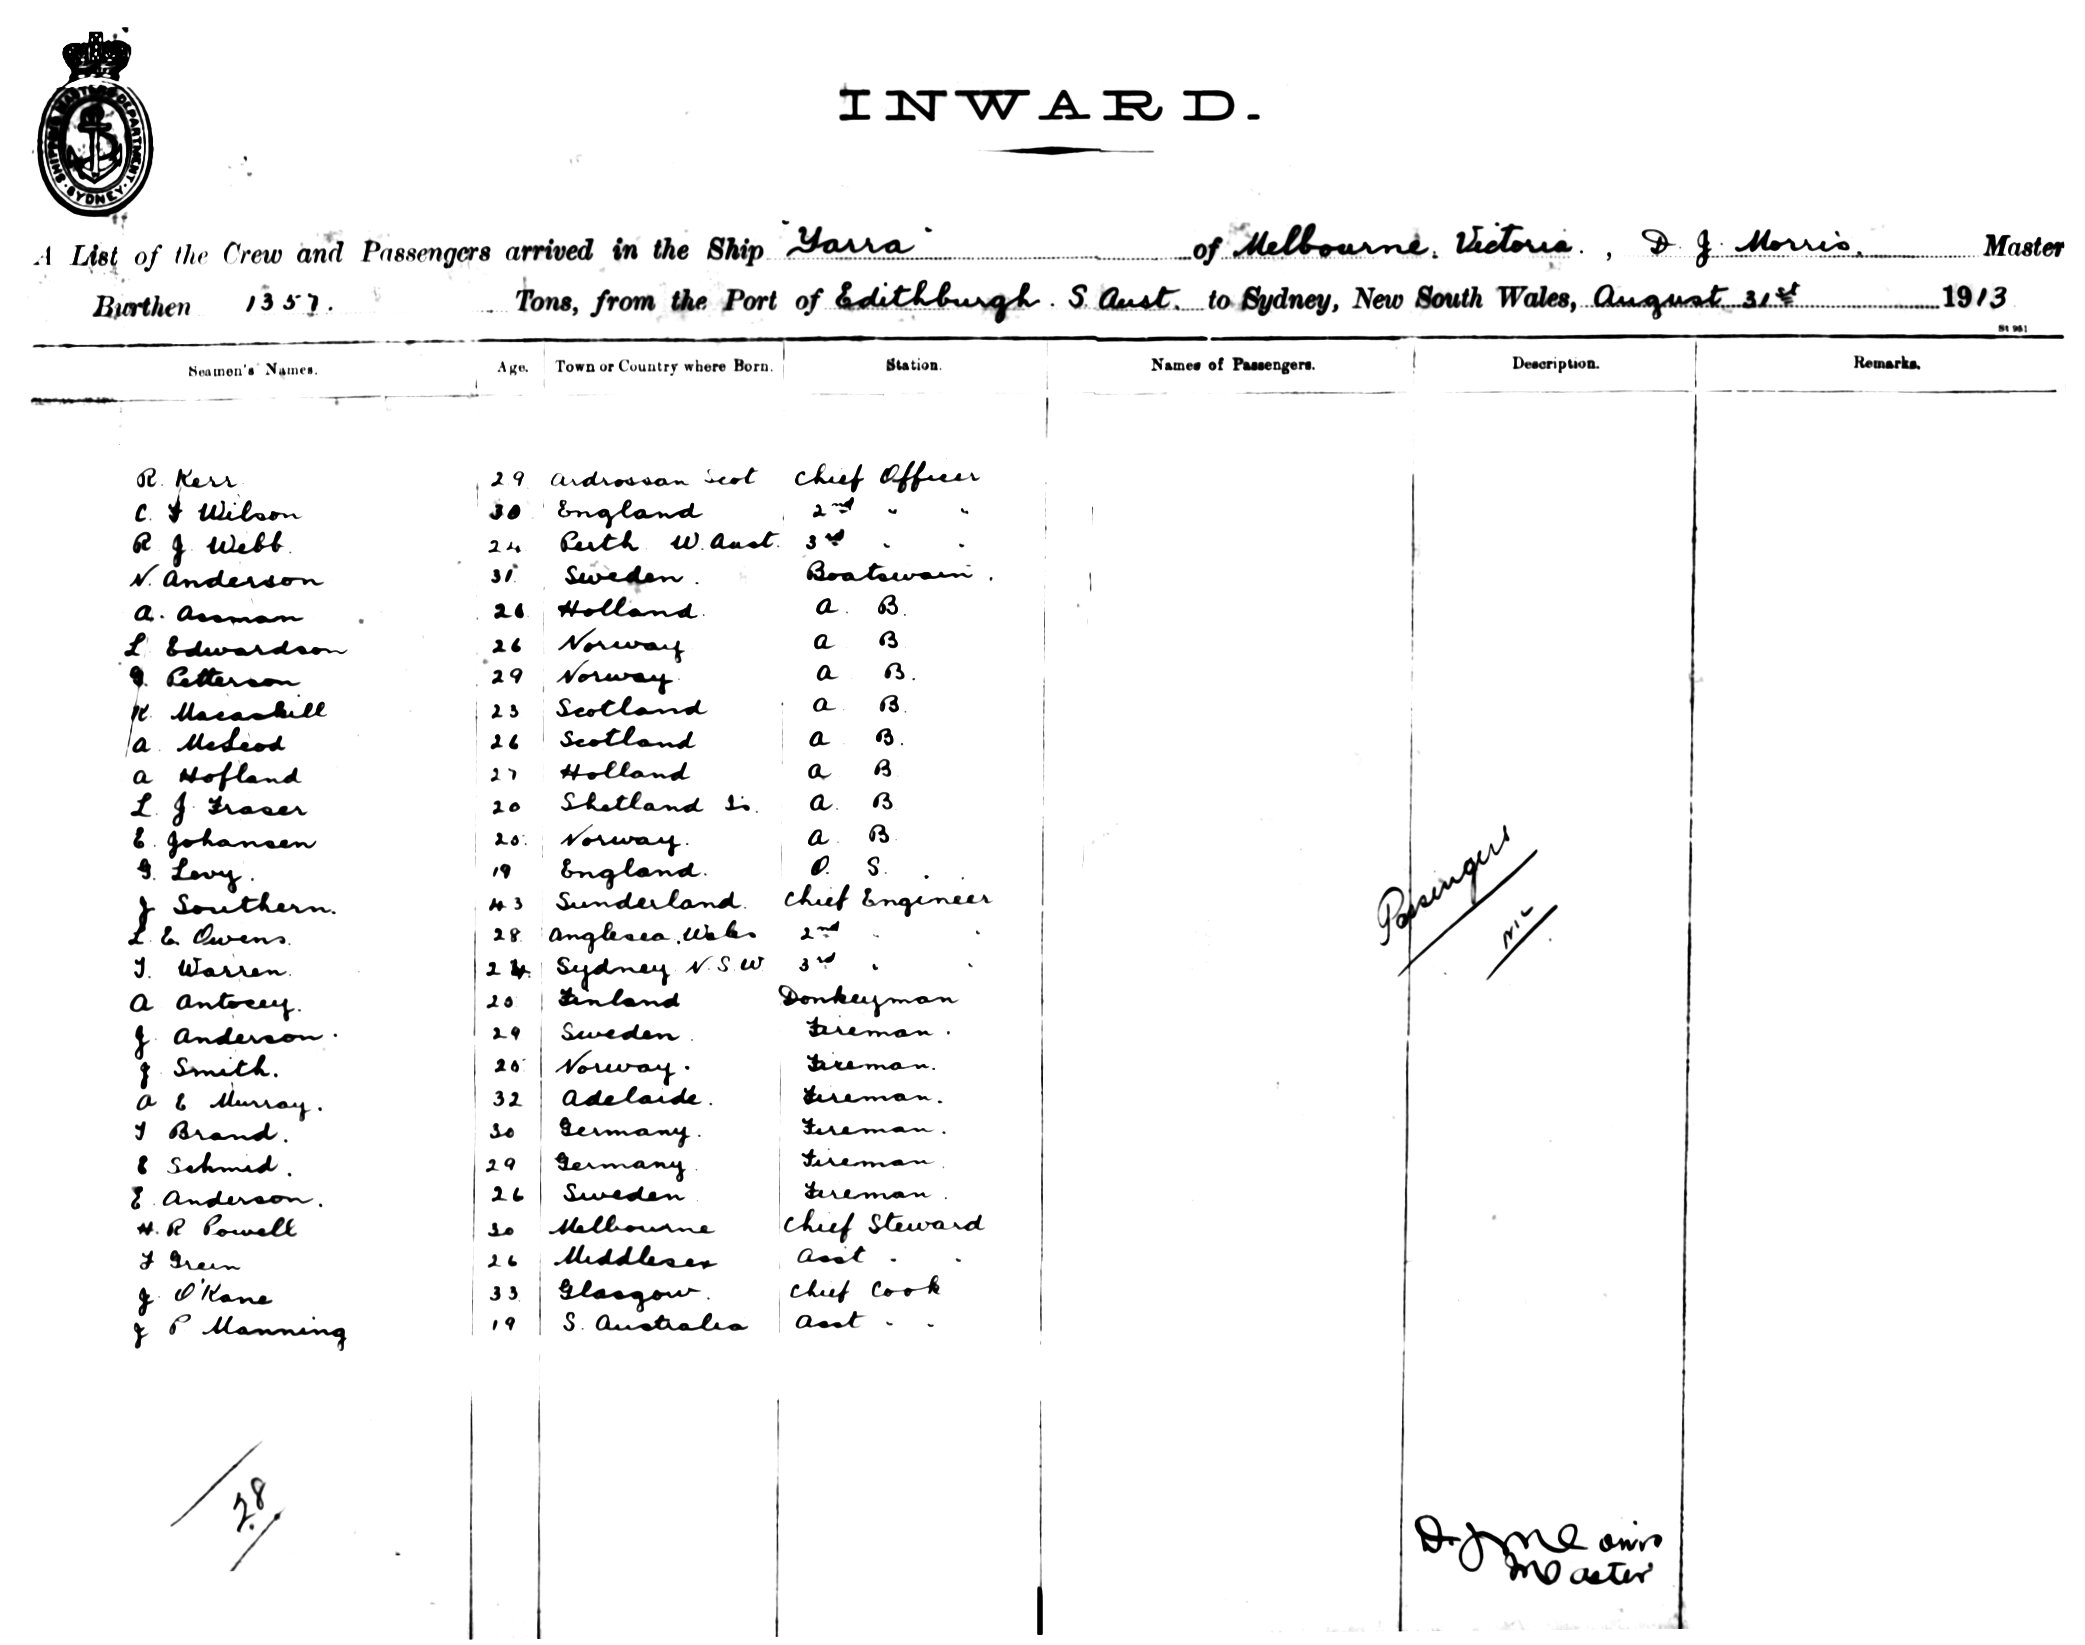 SHIPPING MASTERS DEPARTMENT · SYDNEY ·
INWARD.
A List of the Crew and Passengers arrived in the Ship "Yarra" of Melbourne, Victoria. , D. J. Morris. Master
Burthen 1357. Tons, from the Port of Edithburgh. S. Aust. to Sydney, New South Wales, August 31st 1913
St 961
Seamen's Names. Age. Town or Country where Born. Station. Names of Passengers. Description. Remarks.
R. Kerr 29 Ardrossan Scot Chief Officer
C. F Wilson 30 England 2nd " "
R J Webb. 24 Perth W. Aust. 3rd " "
N. Anderson 31 Sweden. Boatswain.
A. Assman 26 Holland. A. B.
L Edwardson 26 Norway A B
G. Petterson 29 Norway A B.
K. Macaskill 23 Scotland A B.
A McLeod 26 Scotland A B.
A Hofland 27 Holland A B
L. J. Fraser 20 Shetland Is. A. B
E. Johansen 25. Norway. A B
G. Levy. 19 England. O. S.
J Southern. 43 Sunderland. Chief Engineer
L. E. Owens. 28 Anglesea, Wales 2nd " "
T. Warren. 24. Sydney N. S. W 3rd " "
A Antocey. 20 Finland Donkeyman
J Anderson. 29 Sweden. Fireman.
J Smith. 25 Norway. Fireman.
A E Murray. 32 Adelaide. Fireman.
T Brand. 30 Germany. Fireman.
E Schmid. 29 Germany Fireman.
E. Anderson. 26 Sweden Fireman.
H. R Powell 30 Melbourne Chief Steward
F Green 26 Middlesex Asst " "
J. O'Kane 33 Glasgow. Chief Cook
J P Manning 19 S. Australia Asst " "
Passengers
Nil
28
D. J. Morris
Master